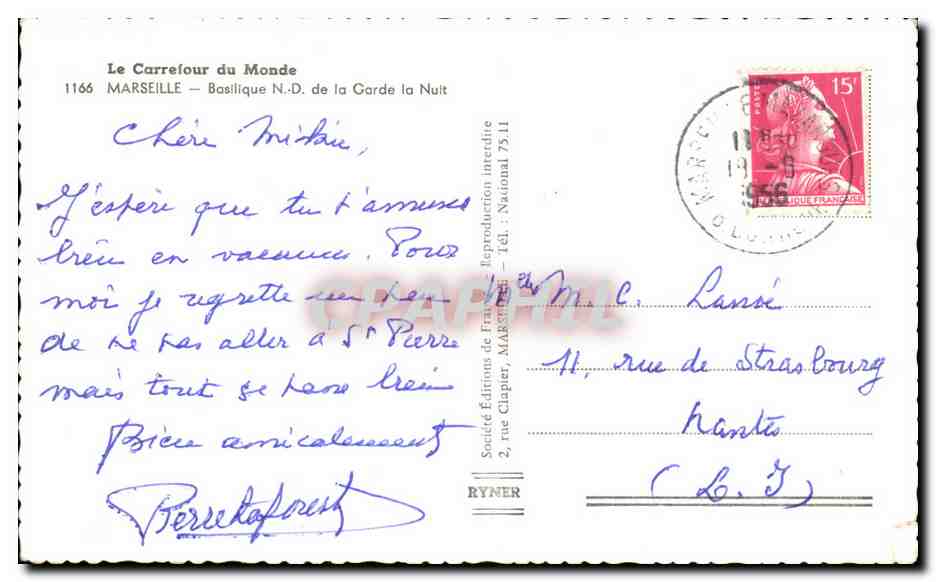 Le Carrefour du Monde
1166 MARSEILLE — Basilique N.-D. de la Garde la Nuit
Chère
J'espère que tu t'amuses
bien en vacances. Pour
moi je regrette un peu
de ne pas aller à St Pierre
mais tout se passe bien
Bien amicalement
Société Éditions de France - Reproduction interdite
2, rue Clapier, MARSEILLE — Tél. : National 75.11
RYNER
15F
POSTES
RÉPUBLIQUE FRANÇAISE
1956
Melle M. C.
11, rue de Strasbourg
Nantes
(L. I)
CPAPHIL